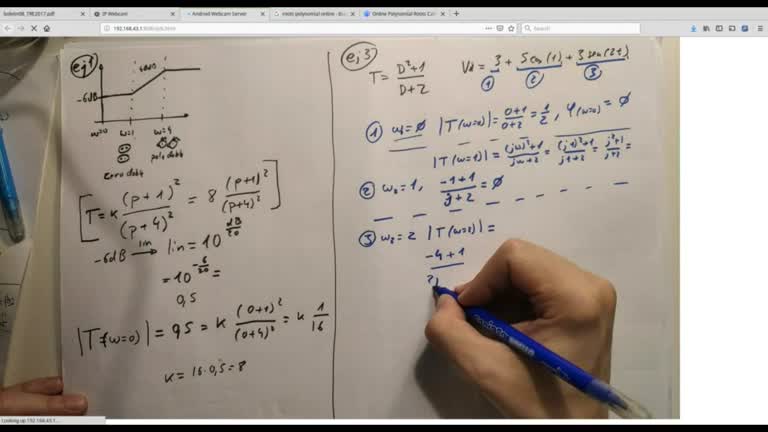 boletin08_TRE2017.pdf
IP Webcam
Android Webcam Server
roots polynomial online - Bu
Online Polynomial Roots Cal
192.168.43.1:8080/js8.html
Search
ej1
60dB
-6dB
w=0 w=1 w=4
cero doble
polo doble
[T=K (p+1)² / (p+4)² = 8 (p+1)² / (p+4)²]
-6dB lin→ lin=10^(dB/20)
=10^(-6/20)=
0,5
|T(w=0)| = 0,5 = K (0+1)² / (0+4)² = K 1/16
K= 16·0,5=8
ej3
T= D²+1 / D+2
Vd= 3 + 5cos(t) + 3sen(2t)
① ② ③
① w₁=∅ |T(w=0)|= 0+1 / 0+2 = 1/2, φ(w=0)=∅
|T(w=1)|= (jw)²+1 / jw+2 = (j1)²+1 / j1+2 = j²+1 / j+2 =
② w₂=1, -1+1 / j+2 = ∅
③ w₂=2 |T(w=2)|=
-4+1
2j
Looking up 192.168.43.1...